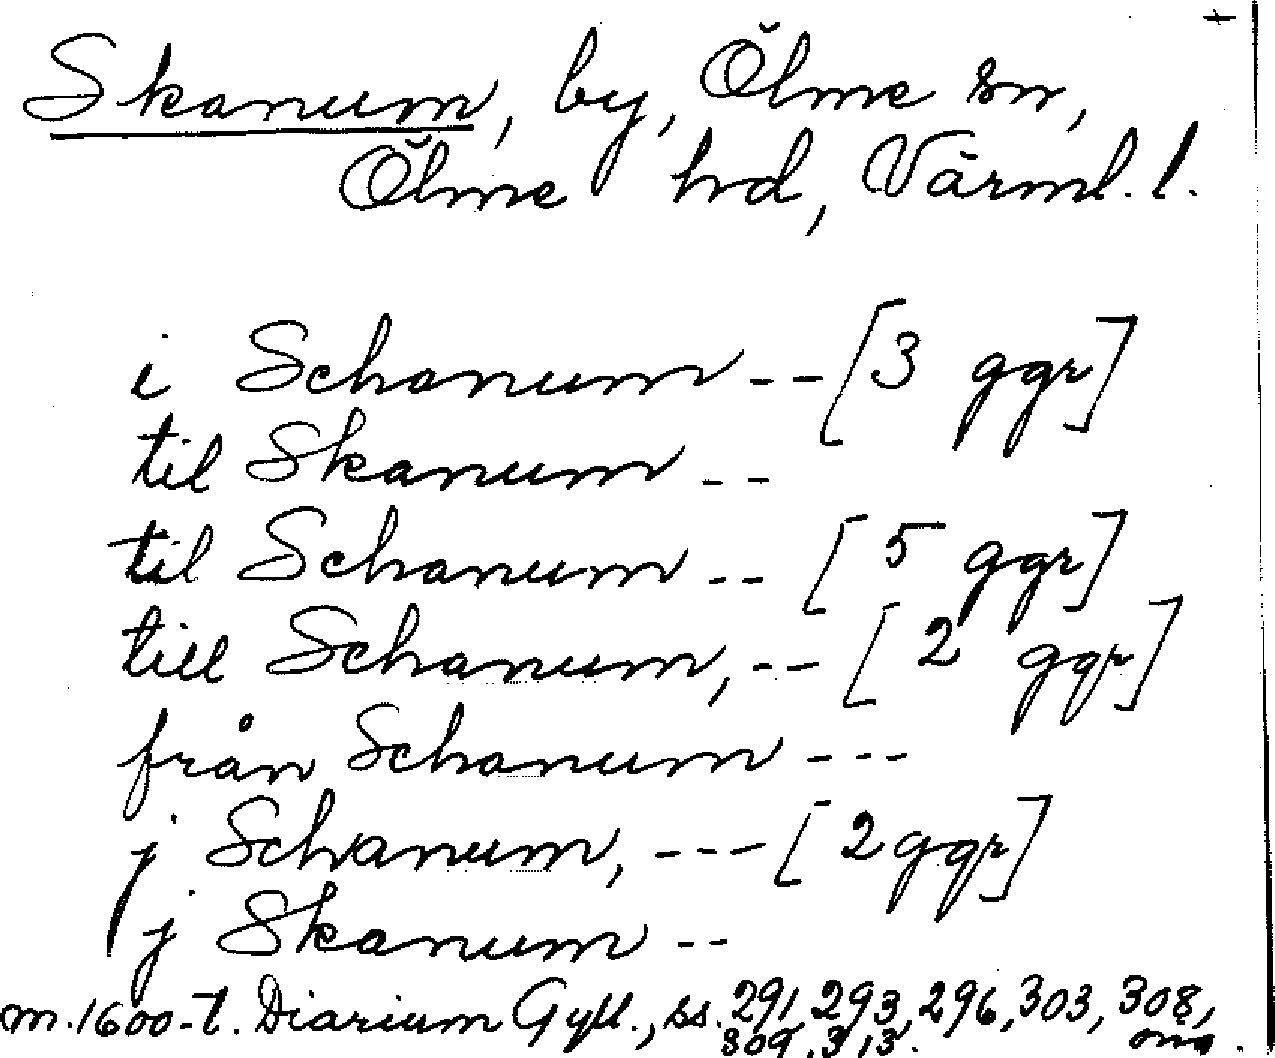 Skanum, by, Ölme sn,
Ölme hd, Värml. l.
i Schanum -- [3 ggr]
til Skanum --
til Schanum -- [5 ggr]
till Schanum, -- [2 ggr]
från Schanum ---
j Schanum, --- [2 ggr]
j Skanum --
m. 1600-t. Diarium Gyll., ss. 291, 293, 296, 303, 308,
309, 313.